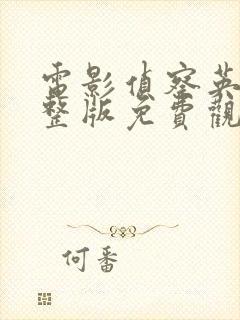 電影偵察英
整版免費觀
何番